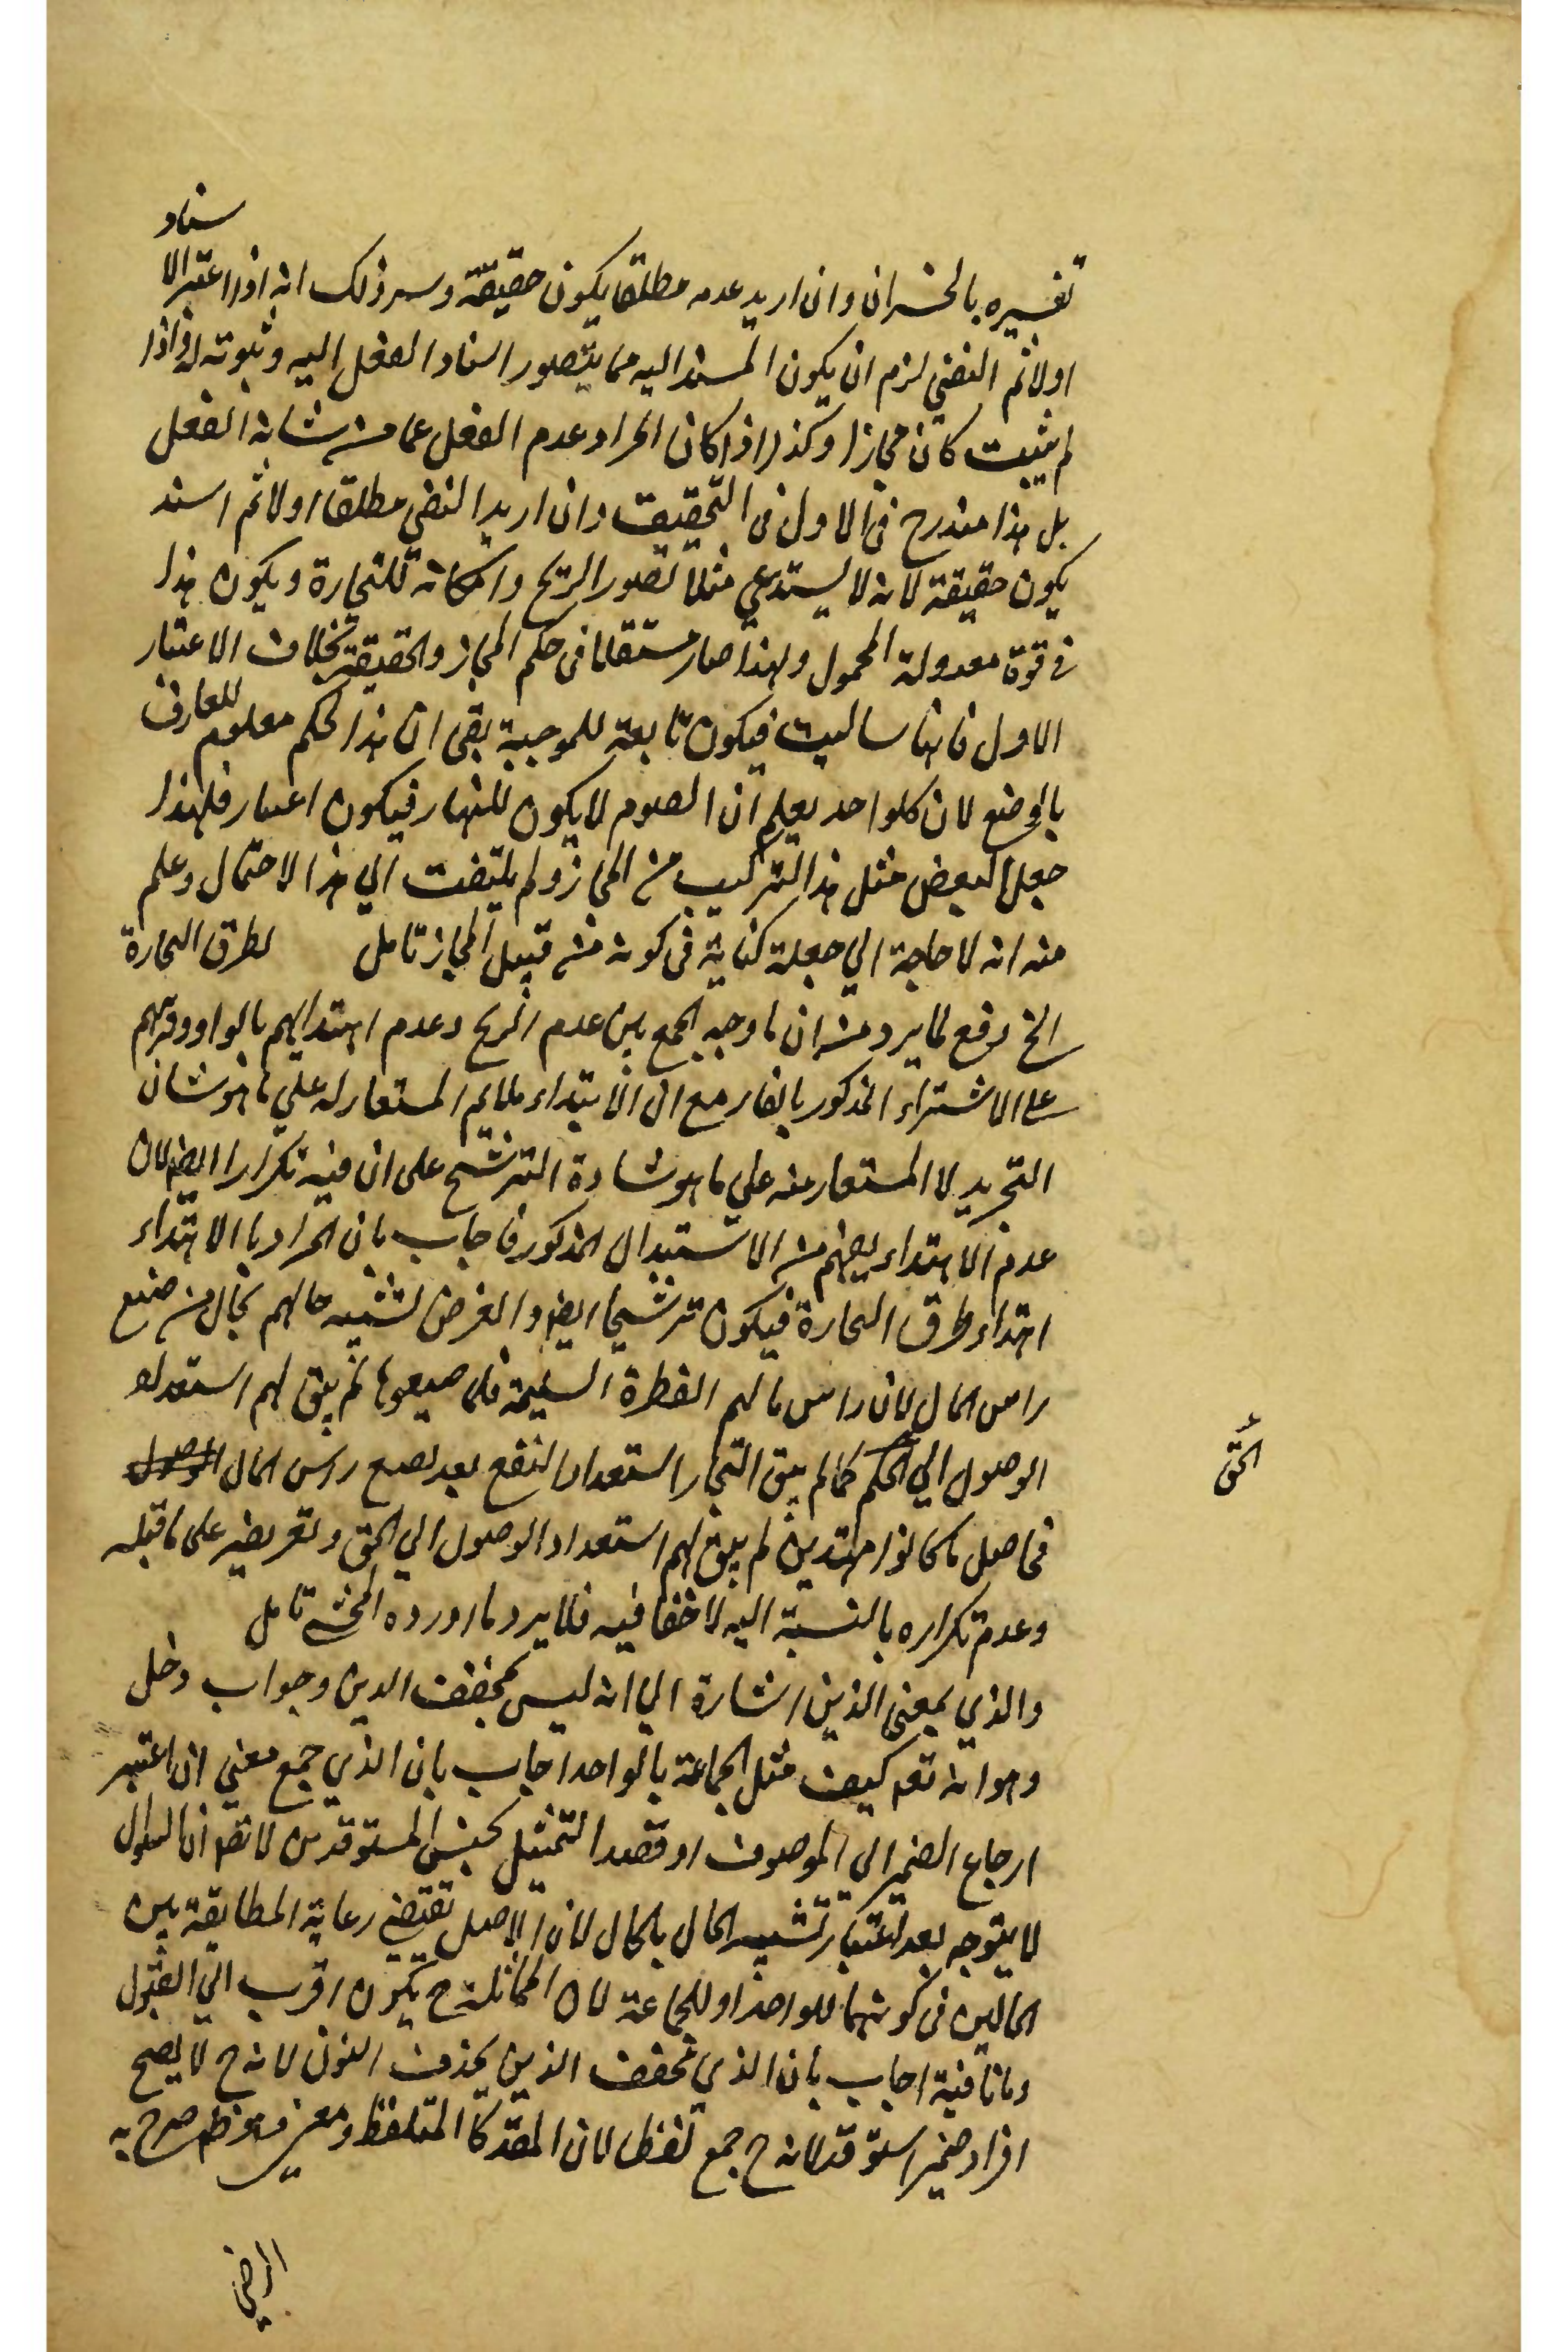 سناد
تفسيره بالخسران وان اريد عدمه مطلقا يكون حقيقة وسر ذلك انه اذا اعتبر الا
اولا ثم النفي لزم ان يكون المسند اليه مما يتصور اسناد الفعل اليه وثبوته له واذا
لم يثبت كان مجازا وكذا اذا كان المراد عدم الفعل عما من شانه الفعل
بل هذا مندرج في الاول في التحقيق وان اريد النفي مطلقا اولا ثم اسند
يكون حقيقة لانه لا يستدعي مثلا تصور الربح وامكانه للتجارة ويكون هذا
في قوة معدولة المحمول ولهذا صار مستقلا في حكم المجاز والحقيقة بخلاف الاعتبار
الاول فانها سالبة فيكون تابعة للموجبة بقى ان هذا الحكم معلوم للعارف
بالوضع لان كلواحد يعلم ان الصوم لا يكون للنهار فيكون اعتبار فلهذا
جعل البعض مثل هذا التركيب من المجاز ولم يلتفت الي هذا الاحتمال وعلم
منه انه لا حاجة الي جعله كناية في كونه من قبيل المجاز تامل لطرق التجارة
الخ دفع لما يرد من ان ما وجه الجمع بين عدم الربح وعدم اهتدائهم بالواو وترتبهم
على الاشتراء المذكور بالفاء مع ان الاهتداء ملايم المستعار له علي ما هو شان
التجريد لا المستعار منه علي ما هو شارة الترشيح على ان فيه تكرارا ايضا لان
عدم الاهتداء يفهم من الاستبدال المذكور فاجاب بان المراد بالاهتداء
اهتداء طرق التجارة فيكون ترشيحا ايضا والغرض تشبيه حالهم بحال من ضيع
راس المال لان راس مالهم الفطرة السليمة فلما ضيعوها لم يبق لهم استعداد
الوصول الي الحكم كما لم يبق التجار استعداد النفع بعد تضيع راس المال الوصول
الحق
فحاصل ما كانوا مهتدين لم يبق لهم استعداد الوصول الي الحق وتعريضه على ما قبله
وعدم تكراره بالنسبة اليه لا خفا فيه فلا يرد ما اورده المحشي تامل
والذي بمعنى الذين اشارة الي انه ليس مخفف الذين وجواب دخل
وهو انه تعم كيف مثل الجماعة بالواحد اجاب بان الذي جمع معني ان اعتبر
ارجاع الضمير الي الموصوف او قصد التمثيل بجنس المستوقدين لا تقول ان السؤال
لا يتوجه بعد اعتبار تشبيه الحال بالحال لان الاصل تقتضي رعاية المطابقة بين
الحالين في كونهما للواحد او للجماعة لان المماثلة ح يكون اقرب الي القبول
وثانيا اجاب بان الذي مخفف الذين بحذف النون لانه ح لا يصح
افراد ضمير استوقد لانه ح جمع لفظا لان المقدر كالمتلفظ ومعنى وهو ظم صرح به
الرضي